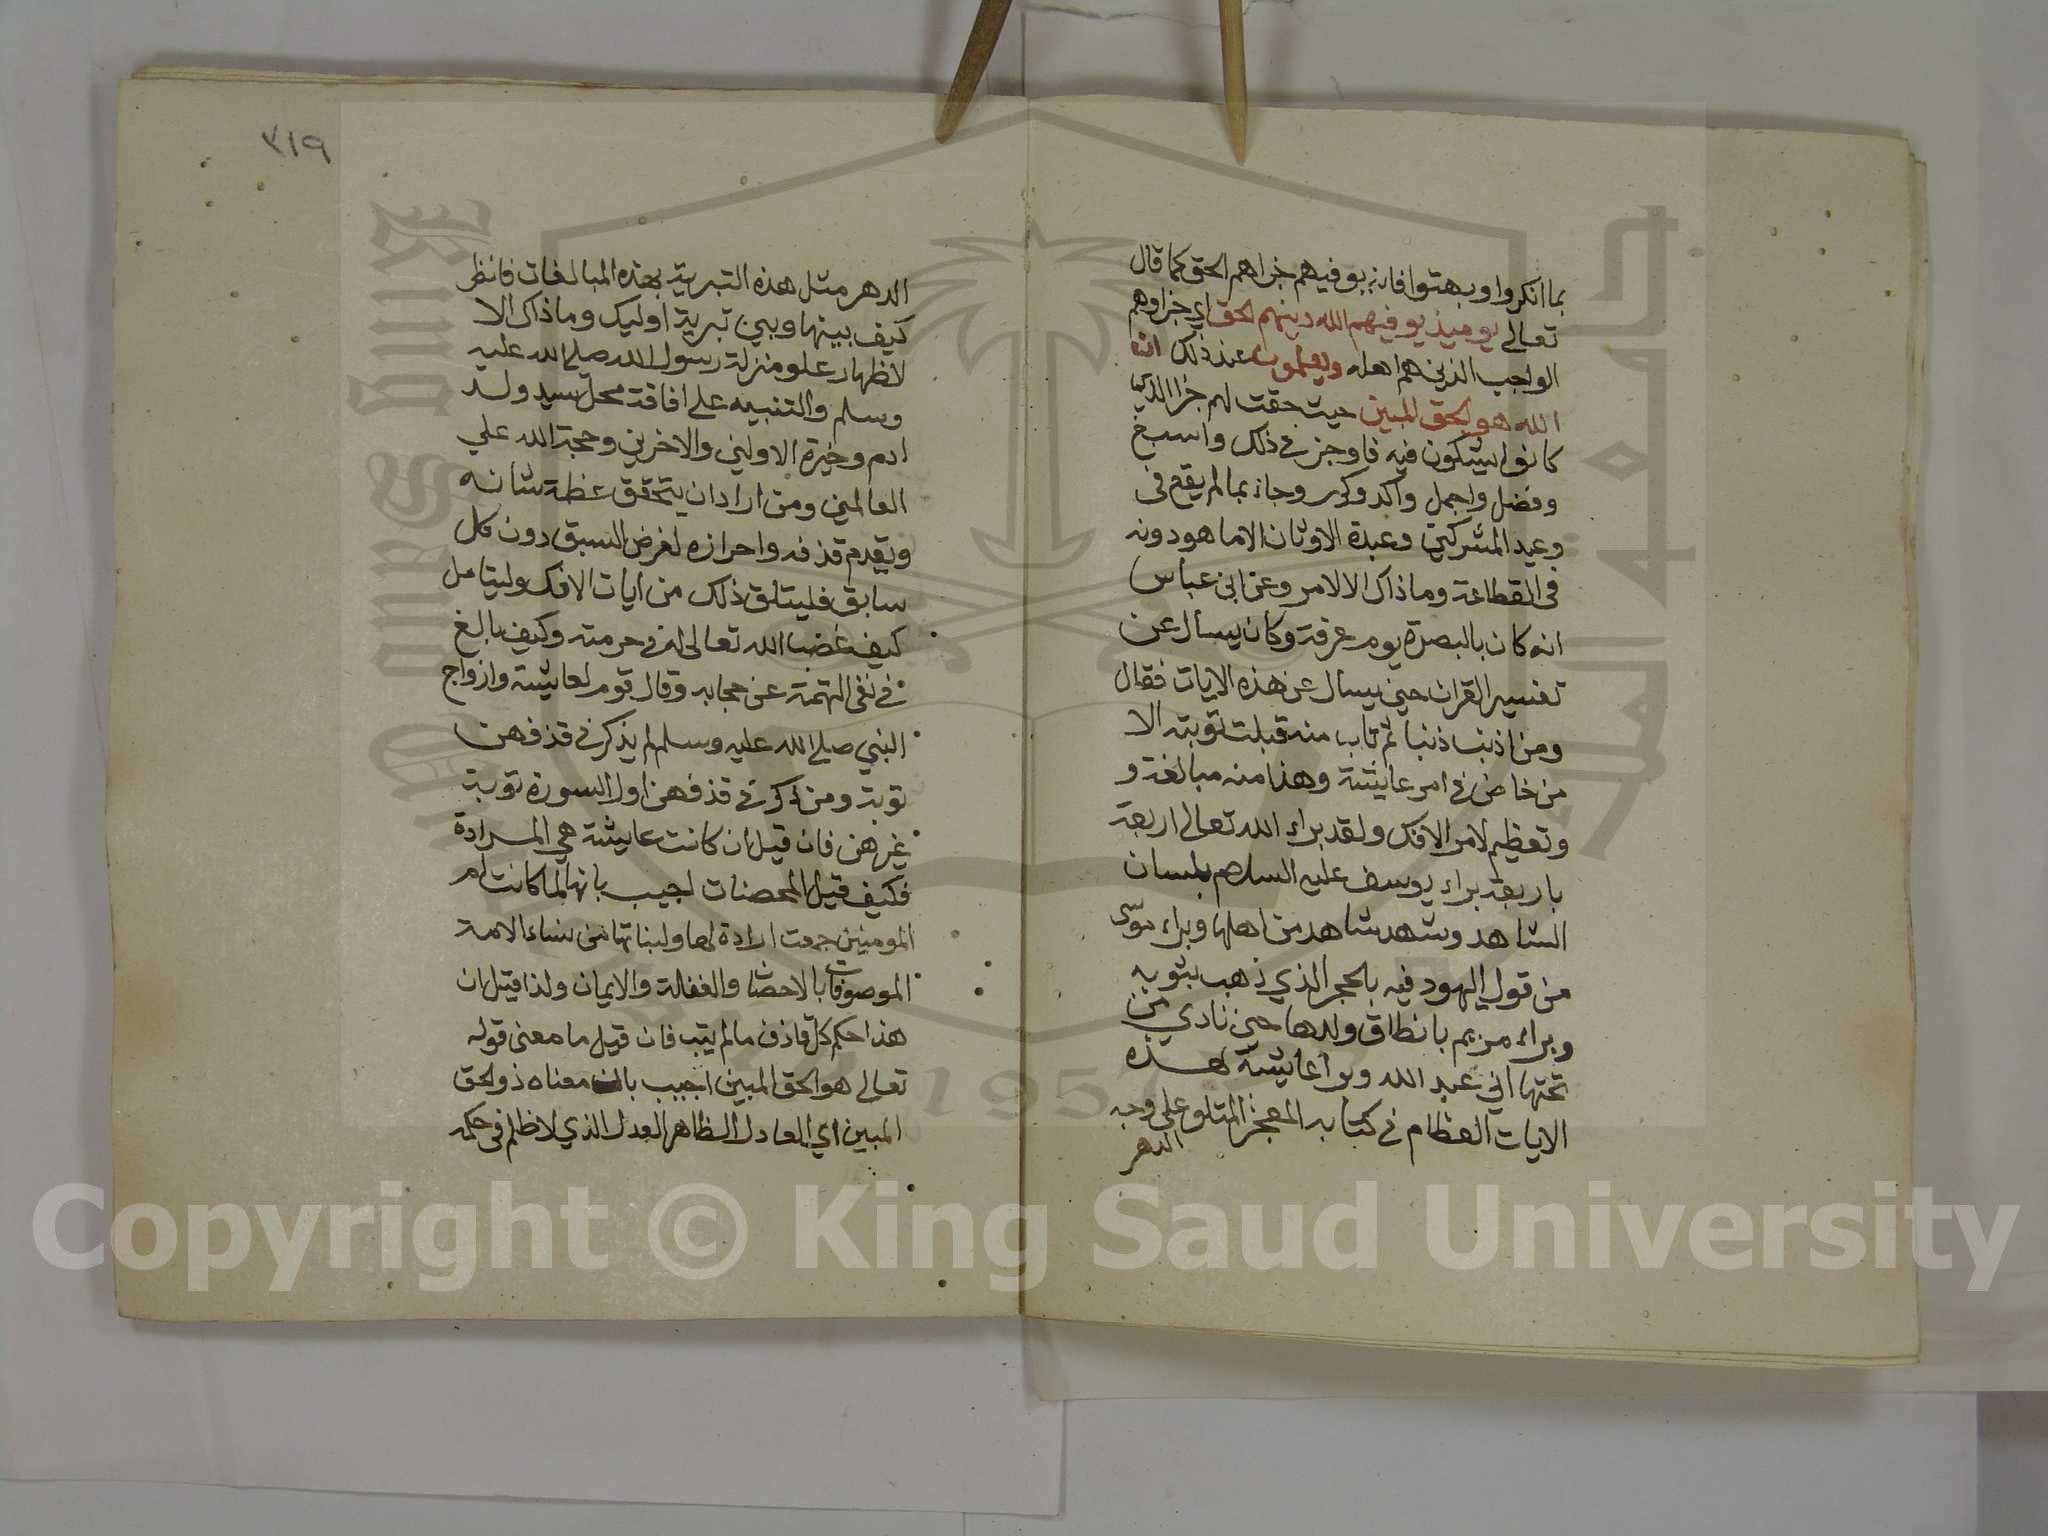 بما انكروا وبهتوا فانه يوفيهم جزاهم الحق كما قال
تعالى يوميذ يوفيهم الله دينهم الحق اي جزاوهم
الواجب الذين هم اهله ويعلمون عند ذلك ان
الله هو الحق المبين حيث حققت لهم جزا الذي
كانوا يشكون فيه فاوجز في ذلك واسبغ
وفضل واجمل واكد وكرر وجاء بما لم يقع في
وعيد المشركين وعبدة الاوثان الا ما هو دونه
في القطاعة وما ذاك الا لامر وعن ابن عباس
انه كان بالبصرة يوم عرفة وكان يسال عن
تفسير القران حين يسال عن هذه الايات فقال
ومن اذنب ذنبا ثم تاب منه قبلت توبته الا
من خاض في امر عايشة وهذا منه مبالغة و
وتعظيم لامر الافك ولقد براء الله تعالى اربعة
باربعة براء يوسف عليه السلام بلسان
الشاهد وشهد شاهد من اهلها وبراء موسى
من قول اليهود فيه بالحجر الذي ذهب بثوبه
وبراء مريم بانطاق ولدها حين نادي من
تحتها اني عبد الله وبرا عايشة بهذه
الايات العظام في كتابه المعجز المتلو على وجه
الدهر
٣١٩
الدهر مثل هذه التبرية بهذه المبالغات فانظر
كيف بينها وبين تبرية اوليك وما ذاك الا
لاظهار علو منزلة رسول الله صلى الله عليه
وسلم والتنبيه على افاقة محل سيد ولد
ادم وخيرة الاولين والاخرين وحجة الله علي
العالمين ومن اراد ان يتحقق عظمة شانه
وتقدم قدفه واحرازه لغرض السبق دون كل
سابق فليتلق ذلك من ايات الافك وليتامل
كيف غضب الله تعالى له في حرمته وكيف بالغ
في نفي التهمة عن حجابه وقال قوم لعايشة وازواج
النبي صلى الله عليه وسلم لم يذكر في قذفهن
توبة ومن ذكر في قذفهن اول السورة توبة
غيرهن فان قيل ان كانت عايشة هي المرادة
فكيف قيل المحصنات اجيب بانها لما كانت ام
المومنين جمعت ارادة لها ولبناتها من نساء الامة
الموصوفات بالاحصان والغفلة والايمان ولذا قيل ان
هذا حكم كل قاذف ما لم يتب فان قيل ما معنى قوله
تعالى هو الحق المبين اجيب بان معناه ذو الحق
المبين اي العادل الظاهر العدل الذي لا ظلم في حكمه
Copyright © King Saud University
King Saud University
1957